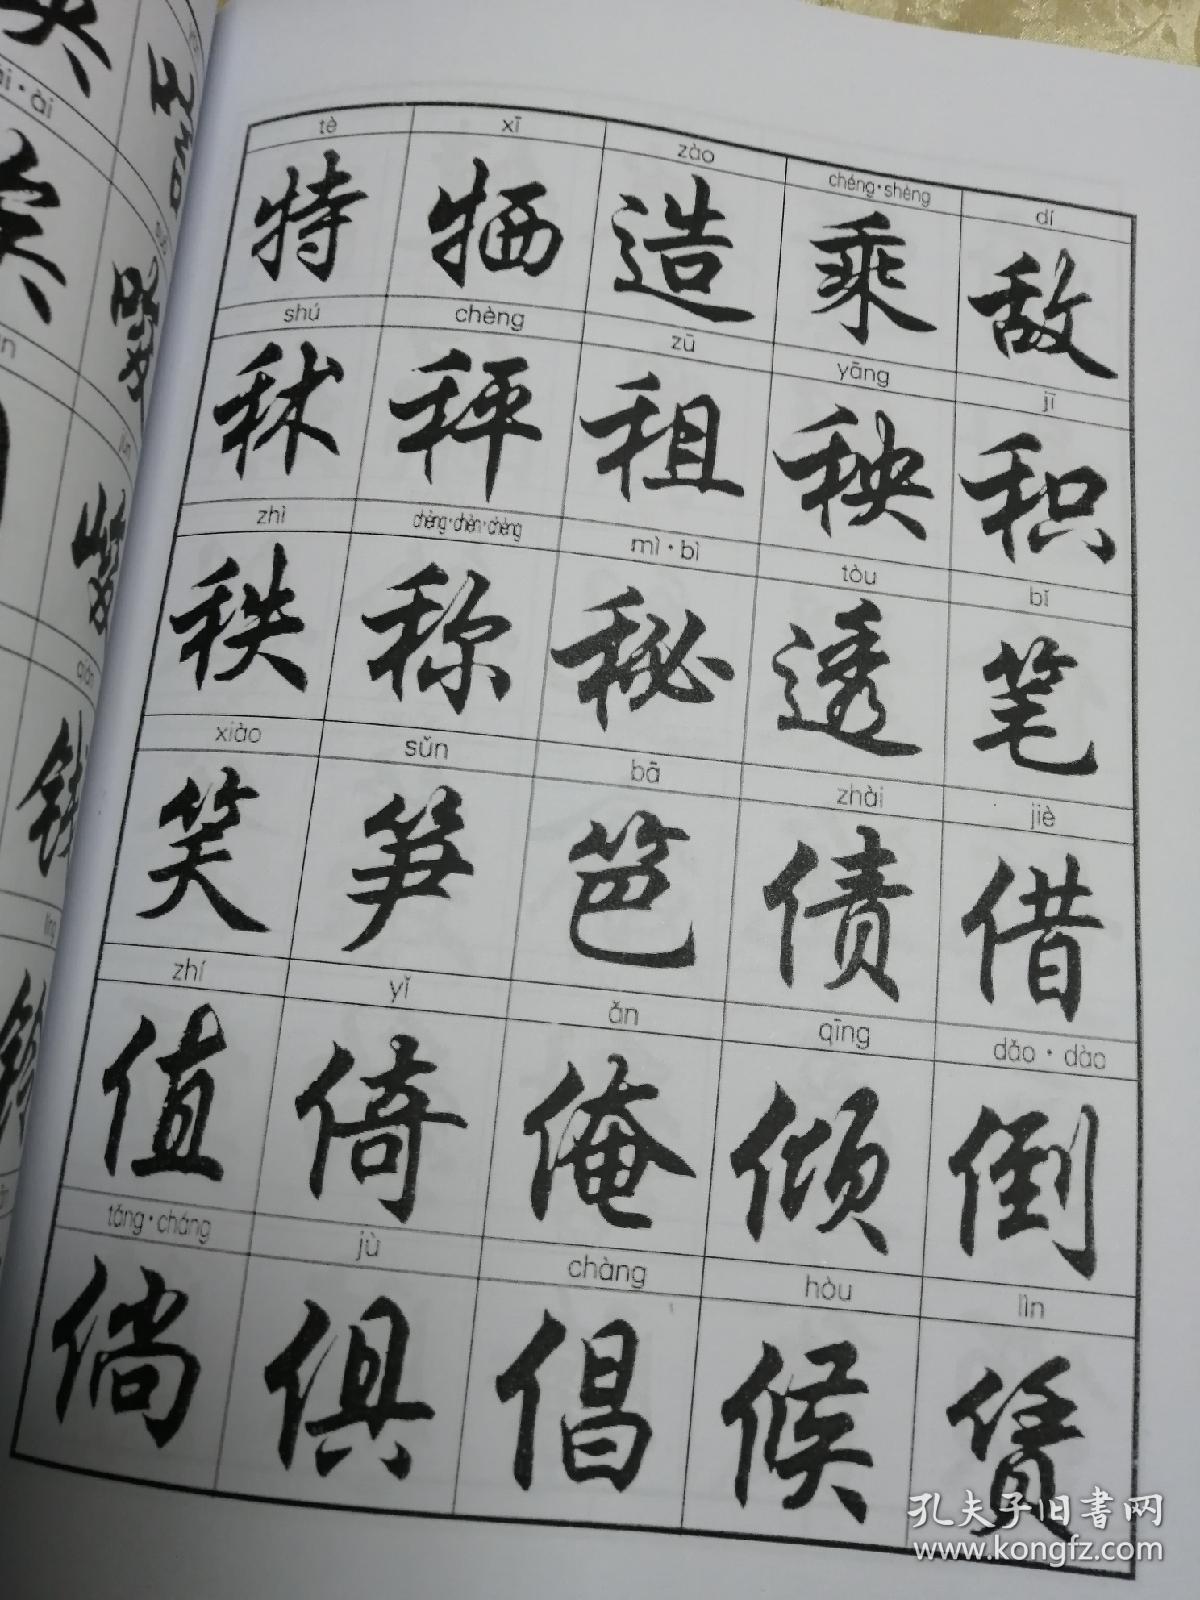 tè xī zào chéng·shèng dí
特 牺 造 乘 敌
shú chèng zū yāng jī
秫 秤 租 秧 积
zhì chēng·chèn·chèng mì·bì tòu bǐ
秩 称 秘 透 笔
xiào sǔn bā zhài jiè
笑 笋 笆 债 借
zhí yǐ ǎn qīng dǎo·dào
值 倚 俺 倾 倒
tǎng·cháng jù chàng hòu lìn
倘 俱 倡 候 赁
孔夫子旧书网
www.kongfz.com